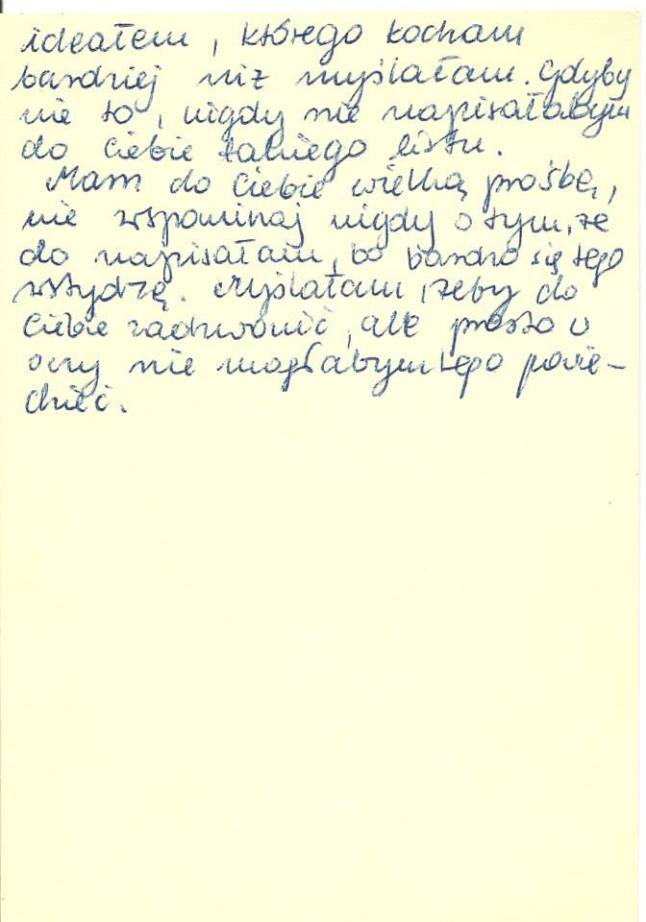 ideałem, którego kocham
bardziej niż myślałam. Gdyby
nie to, nigdy nie napisałabym
do Ciebie takiego listu.
Mam do Ciebie wielką prośbę,
nie wspominaj nigdy o tym, że
do napisałam, bo bardzo się tego
wstydzę. Myślałam, żeby do
Ciebie zadzwonić, ale prosto w
oczy nie mogłabym tego powie-
dzieć.